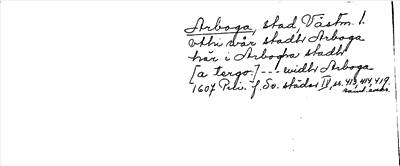 Arboga, stad, Västm. l.
vtti wår stadh Arboga
här i Arbogha stadh
[a tergo:] --- widh Arboga
1607 Priv. f. Sv. städer IV, ss. 413, 414, 419.
samt. anm.